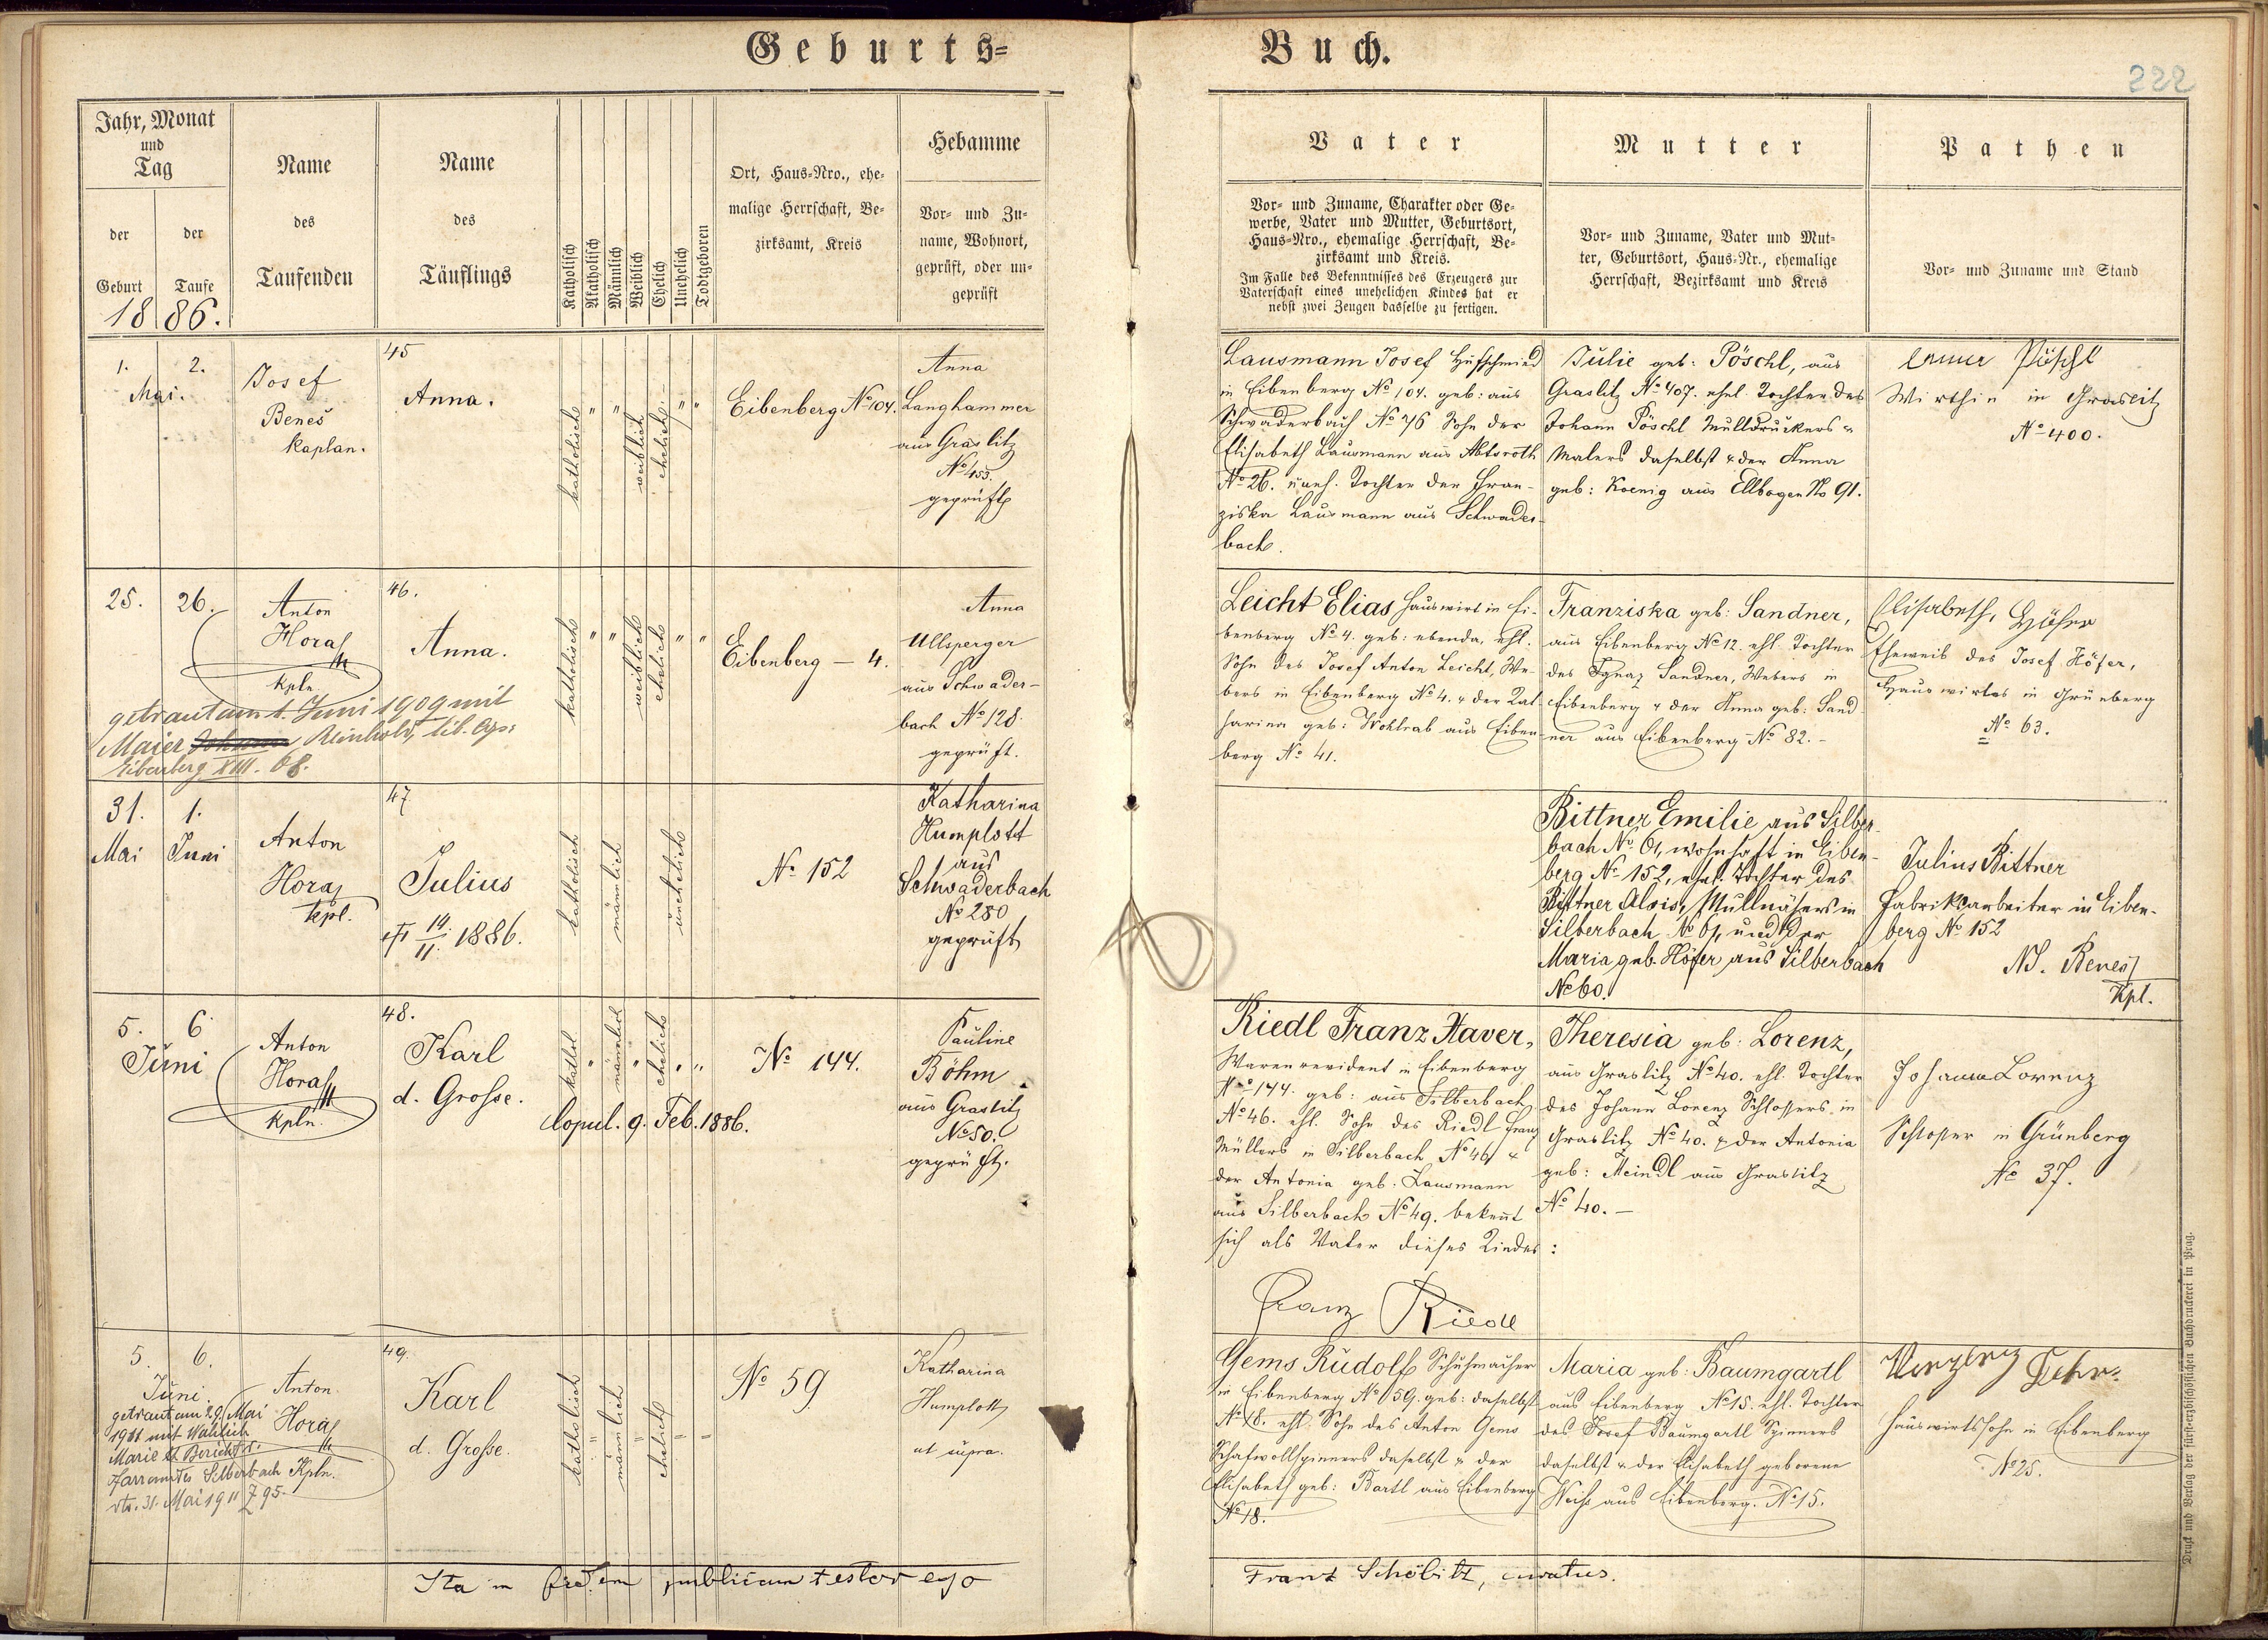 Geburts=
Buch.
222
Jahr, Monat
und
Tag
der
Geburt
der
Taufe
1886.
Name
des
Taufenden
Name
des
Täuflings
Katholisch
Akatholisch
Männlich
Weiblich
Ehelich
Unehelich
Todtgeboren
Ort, Haus=Nro., ehe=
malige Herrschaft, Be=
zirksamt, Kreis
Hebamme
Vor= und Zu=
name, Wohnort,
geprüft, oder un=
geprüft
Vater
Vor= und Zuname, Charakter oder Ge=
werbe, Vater und Mutter, Geburtsort,
Haus=Nro., ehemalige Herrschaft, Be=
zirksamt und Kreis.
Im Falle des Bekenntnisses des Erzeugers zur
Vaterschaft eines unehelichen Kindes hat er
nebst zwei Zeugen dasselbe zu fertigen.
Mutter
Vor= und Zuname, Vater und Mut=
ter, Geburtsort, Haus=Nr., ehemalige
Herrschaft, Bezirksamt und Kreis
Pathen
Vor= und Zuname und Stand
1. 2.
Mai.
Josef
Beneš
Kaplan.
45
Anna.
katholisch " " weiblich ehelich " "
Eibenberg No 104.
Anna
Langhammer
aus Graslitz
No 453.
geprüft
Lausmann Josef Hufschmied
in Eibenberg No 104. geb: aus
Schwaderbach No 76 Sohn der
Elisabeth Lausmann aus Abtsroth
No 26. uneh. Tochter der Fran-
ziska Lausmann aus Schwader-
bach.
Julie geb: Pöschl, aus
Graslitz No 407. ehel. Tochter des
Johann Pöschl Mulldruckers u
Malers daselbst u der Anna
geb: Koenig aus Ellbogen No 91.
Anna Pöschl
Wirthin in Graslitz
No 400.
25. 26.
Anton
Hora
Kpln
getraut am 1. Juni 1909 mit
Maier Johann Reinhold, lib. cop:
Eibenberg XIII. 68.
46.
Anna.
katholisch " " weiblich ehelich " "
Eibenberg – 4.
Anna
Ullsperger
aus Schwader-
bach No 128.
geprüft.
Leicht Elias Hauswirt in Ei-
benberg No 4. geb: ebenda, ehl.
Sohn des Josef Anton Leicht, We-
bers in Eibenberg No 4. u der Kat-
harina geb: Wohlrab aus Eiben-
berg No 41.
Franziska geb: Sandner,
aus Eibenberg No 12. ehl. Tochter
des Ignaz Sandner, Webers in
Eibenberg u der Anna geb: Sand
ner aus Eibenberg No 82. –
Elisabeth, Höfer
Eheweib des Josef Höfer,
Hauswirtes in Grünberg
No 63.
31. 1.
Mai Juni
Anton
Hora
kpl.
47.
Julius
† 14./11. 1886.
katholisch männlich unehelich
No 152
Katharina
Humplott
aus
Schwaderbach
No 280
geprüft
Bittner Emilie aus Silber-
bach No 61, wohnhaft in Eiben-
berg No 152, ehel. Tochter des
Bittner Alois, Mullnähers in
Silberbach No 61, und der
Maria, geb. Höfer aus Silberbach
No 60.
Julius Bittner
Fabriksarbeiter in Eiben-
berg No 152
Beneš
Kpl.
5. 6.
Juni
Anton
Hora
Kpln.
48.
Karl
d. Grosse.
kathol. " männlich " ehelich " "
Copul. 9. Feb. 1886.
No 144.
Pauline
Böhm
aus Graslitz
No 50.
geprüft.
Riedl Franz Xaver,
Warenrevident in Eibenberg
No 144. geb: aus Silberbach
No 46. ehl. Sohn des Riedl Franz
Müllers in Silberbach No 46 u
der Antonia geb: Lausmann
aus Silberbach No 49. bekennt
sich als Vater dieses Kindes:
Franz Riedl
Theresia geb: Lorenz,
aus Graslitz No 40. ehl. Tochter
des Johann Lorenz Schlossers in
Graslitz No 40. u der Antonia
geb: Meindl aus Graslitz
No 40. –
Johann Lorenz
Schlosser in Grünberg
No 37.
5. 6.
Juni
Anton
Hora
Kpln.
getraut am 29. Mai
1911 mit
Marie lt Bericht d.
Pfarramtes Silberbach
dto. 31. Mai 1911 Z 95.
49.
Karl
d. Grosse.
katholisch " männlich " ehelich " "
No 59
Katharina
Humplott
ut supra.
Gems Rudolf Schuhmacher
in Eibenberg No 59. geb: daselbst
No 18. ehl. Sohn des Anton Gems
Schafwollspinners daselbst u der
Elisabeth geb: Bartl aus Eibenberg
No 18.
Maria geb: Baumgartl
aus Eibenberg No 15. ehl. Tochter
des Josef Baumgartl Spinners
daselbst u der Elisabeth geborene
Weiß aus Eibenberg. No 15.
Hauswirtssohn in Eibenberg
No 25.
Ita in fidem publicam testor ego
Franz Schöbitz, curatus.
Druck und Verlag der fürst=erzbischöflichen Buchdruckerei in Prag.